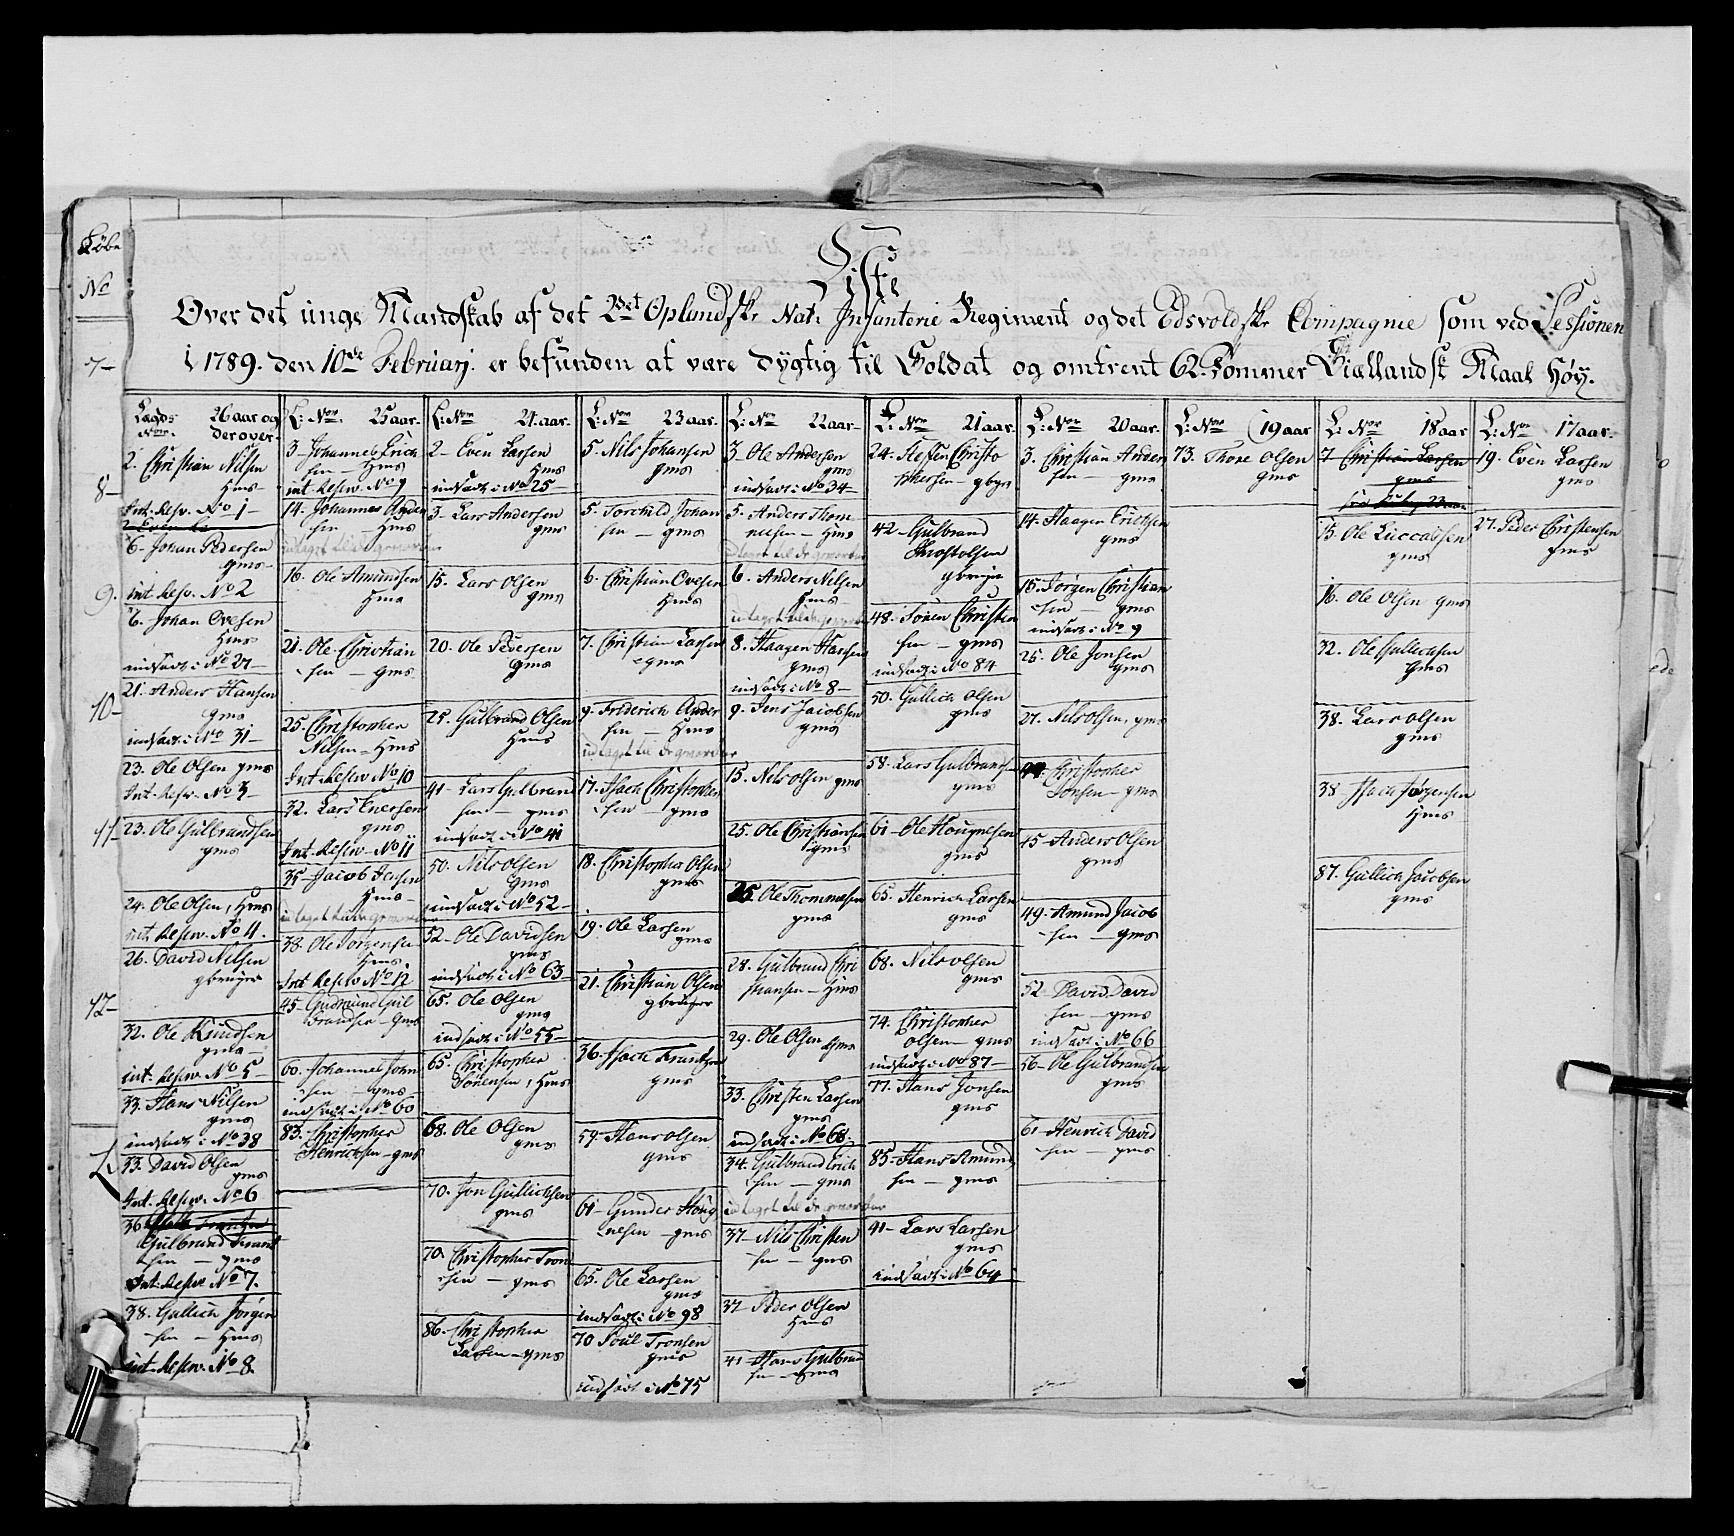 Løbe
No
7-
8-
9.
10-
11-
12-
Liste
Over det unge Mandskab af det 2det Oplandske Nat: Infanterie Regiment og det Edsvoldske Compagnie som ved Sessionen
i 1789. den 10de Februarj. er befunden at være dygtig til Soldat og omtrent 62 Tommer Siællandsk Maal Høy.
Lægds- 26 aar og
Nor. derover.
2. Christian Nilsen
Hms
Int. Resv. No 1-
6. Johan Pedersen
gms
int Resv. No 2
6. Johan Ovesen
Hms
indsadt i No 27-
21. Anders Hansen
gms
indsadt i No 31-
23. Ole Olsen gms
Int. Resv. No 3-
23. Ole Gulbrandsen
gms
24. Ole Olsen, Hms
int. Resv. No 11.
26. David Nilsen
gbruger
32. Ole Knudsen
gms
int. Resv. No 5
33. Hans Nilsen
gms
indsadt i No 38
33. David Olsen
gms
Int. Resv. No 6
36
Gulbrand Frant
sen - gms
Int. Resv. No 7.
38. Gullich Jørgen
sen - Hms
int. Resv. No 8.
L: Nor 25 aar.
3- Johannes Erich
sen - Hms
int. Resv. No 9
14. Johannes Anders
sen - Hms
udtaget til de gevorbne
16. Ole Amundsen
Hms
21. Ole Christian
sen - gms
25. Christopher
Nilsen - Hms
Int. Resv No 10
32. Lars Enersen
gms
Int. Resv. No 11
35- Jacob Jensen
Hms
udtaget til de gevorbne
38. Ole Jørgensen
Hms.
Int Resv No 12
45- Gudmund Gul
brandsen - Gms
60. Johannes John
sen - gms
indsadt i No 60
83. Christopher
Henrichsen - gms
L: Nor 24. aar.
2- Even Larsen
Hms
indsadt i No 25-
3- Lars Andersen
gms
15. Lars Olsen
gms
20. Ole Pedersen
gms
25. Gulbrand Olsen
Hms
41- Lars Gulbrand
sen - gms
indsadt i No 41
50. Nils Olsen
gms
indsadt i No 52-
52- Ole Davidsen
gms
indsadt i No 63-
65. Ole Olsen
gms
indsadt i No 55-
65. Christopher
Sørensen, Hms
68. Ole Olsen
gms
70. Jon Gullichsen
gms
70. Christopher Tron
sen - gms
86. Christopher
Larsen - gms
L: Nor 23 aar.
5. Nils Johansen
gms
5. Torchild Johan
sen - gms
6. Christian Ovesen
Hms
7. Christian Larsen
gms
9. Friderich Ander
sen - Hms
udtaget til de gevorbne
17. Isach Christopher
sen - gms
18. Christopher Olsen
gms
19. Ole Larsen
gms
21. Christian Olsen
gbruger
36. Isach Frantzen
gms
59. Hans Olsen
gms
61- Gunder Houg
nesen - gms
65. Ole Larsen
gms
indsadt i No 98
70 Poul Tronsen
gms
indsadt i No 75
L: Nor 22 aar.
3. Ole Andersen
gms
indsadt i No 34-
5. Anders Thom
mesen - Hms
udtaget til de gevorbne
6. Anders Nilsen
Hms
udtaget til de gevorbne
8. Haagen Hansen
gms
indsadt i No 8-
9. Jens Jacobsen
gms
15. Nils Olsen gms
25. Ole Christiansen
gms
25. Ole Thommesen
gms
28. Gulbrand Chri
stiansen - Hms
29. Ole Olsen gms
33. Christen Larsen
gms
indsadt i No 68.
34. Gulbrand Erich
sen - gms
udtaget til de gevorbne
37- Nils Christen
sen - gms
37 Peder Olsen
Hms
41 Hans Gulbran
sen - gms
L: Nor 21 aar.
24. Steffen Christo
phersen - gbgr
42- Gulbrand
gbruger
48. Søren Christen
sen - gms
indsadt i No 84
50. Gullich Olsen
gms
58. Lars Gulbrandsen
gms
61- Ole Hougnesen
gms
65. Henrich Larsen
gms
68. Nils Olsen
gms
74. Christopher
Olsen - gms
indsadt i No 87-
77. Hans Jonsen
gms
85- Hans Amund
sen - gms
91- Lars Larsen
gms
indsadt i No 64
L: Nor 20 aar.
3. Christian Ander
sen - gms
14. Haagen Erichsen
gms
15. Jørgen Christian
sen - gms
indsadt i No 9
25. Ole Jonsen
gms
27. Nils Olsen, gms
44 Christopher
Jonsen - gms
45- Anders Olsen
gms
49. Amund Jacob
sen - gms
52- David David
sen - gms
indsadt i No 66
56- Ole Gulbrandsen
gms
61- Henrich David
sen - gms
L: Nor 19 aar
73. Thore Olsen
gms
L: Nor 18 aar
7 Christian Larsen
gms
15. Ole Luccassen
gms
16. Ole Olsen gms
32. Ole Gullichsen
gms
38. Lars Olsen
gms
38 Isach Jørgensen
Hms
87. Gullich Jacobsen
gms
L: Nor 17 aar.
19. Even Larsen
gms
27. Peder Christensen
gms